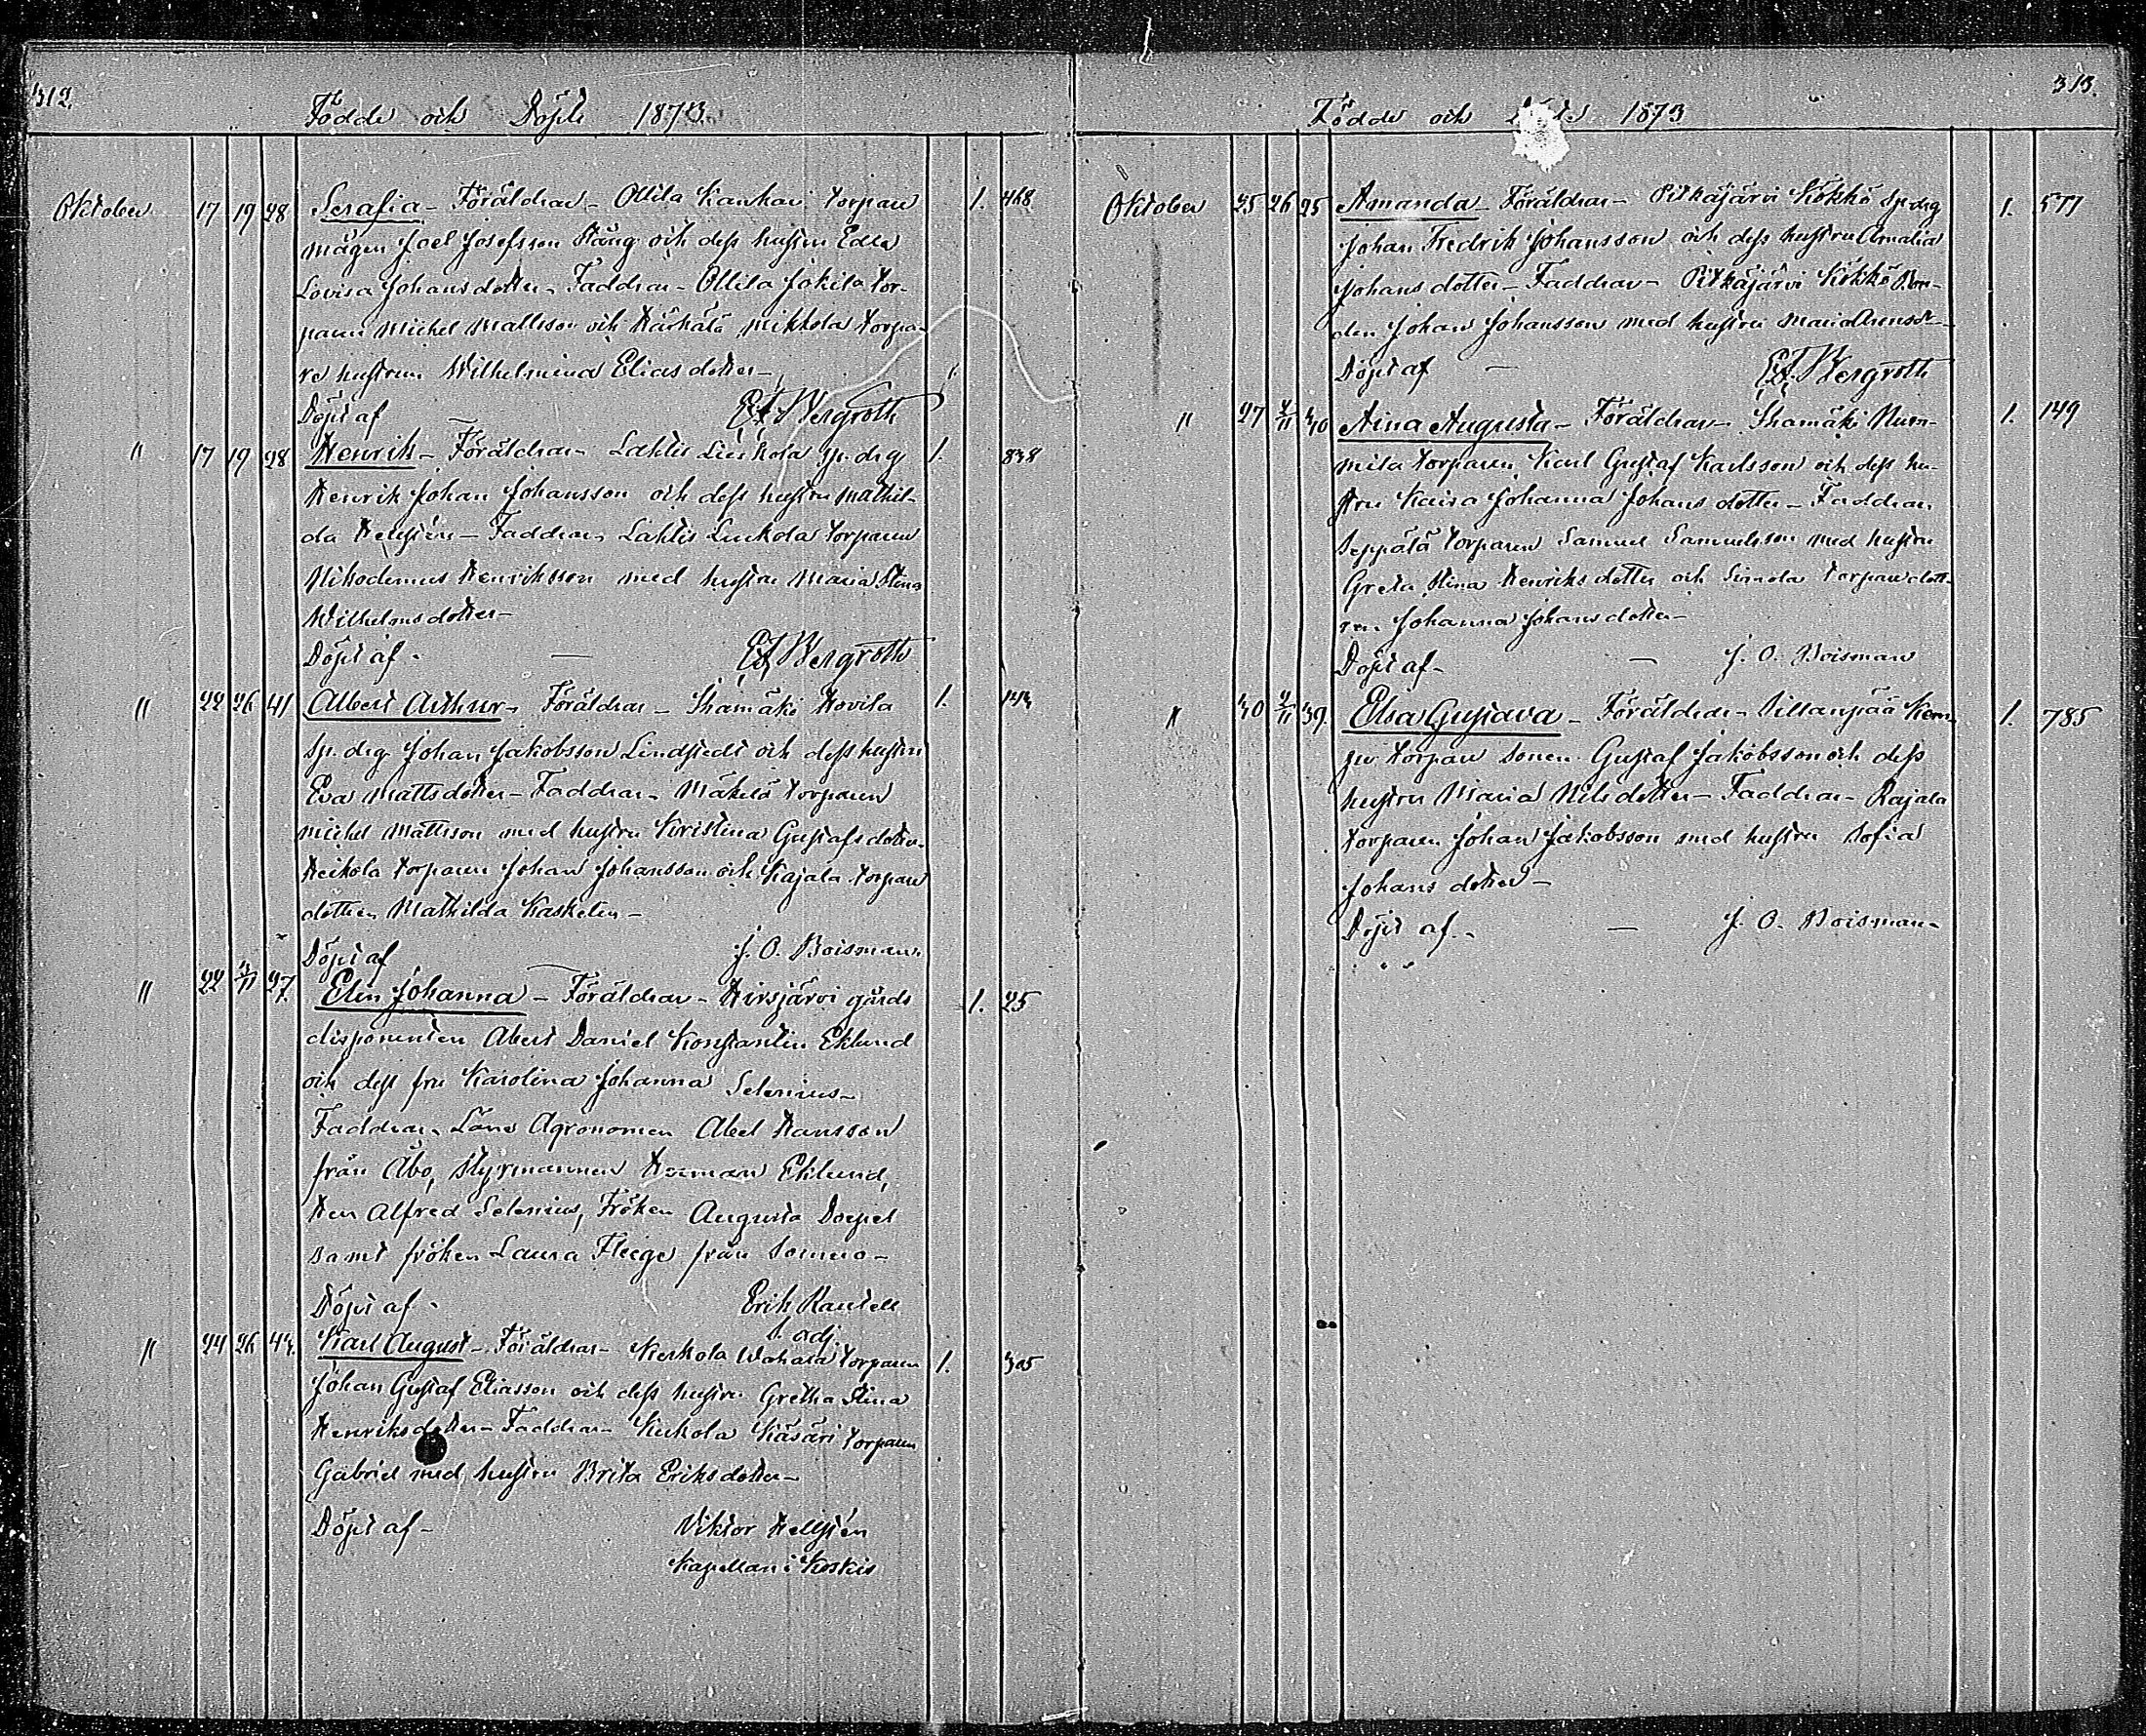 312.
Födde och Döpte 1873.
Oktober 17 19 28 Serafia - Föräldrar - Ollila Kankar torpare 1. 468
mågen Joel Josefsson Stång och dess hustru Edla
Lovisa Johansdotter - Faddrar - Ollila Jokila tor-
paren Michel Mattsson och Härkälä Mikkola torpa-
re hustrun Wilhelmina Eliasdotter -
Döpt af E. F. Bergroth
" 17 19 28 Henrik - Föräldrar - Lahtis Liukola sp. drg 1. 838
Henrik Johan Johansson och dess hustru Mathil-
da Hellstén - Faddrar - Lahtis Liukola torparen
Nikodemus Henriksson med hustru Maria Stina
Wilhelmsdotter -
Döpt af - E. F. Bergroth
" 22 26 41 Albert Arthur - Föräldrar - Ihamäki Hovila 1.
sp. drg Johan Jakobsson Lindstedt och dess hustru
Eva Mattsdotter - Faddrar - Mäkelä torparen
Michel Mattsson med hustru Kristina Gustafsdotter.
Heikola torparen Johan Johansson och Kajala torpare
dottern Mathilda Kaskelin -
Döpt af J. O. Boisman.
" 22 4/11 27. Elin Johanna - Föräldrar - Hirsjärvi gårds 1. 25
disponenten Abert Daniel Konstantin Eklund
och dess fru Karolina Johanna Selenius -
Faddrar - Läns Agronomen Abel Hansson
från Åbo, Styrmannen Herman Eklund,
Herr Alfred Selenius, Fröken Augusta Doepel
samt fröken Laura Fleege från Somero -
Döpt af - Erik Rautell
v. adj.
" 24 26 43. Karl August - Föräldrar - Kerkola Wahala torparen 1. 305
Johan Gustaf Eliasson och dess hustru Gretha Stina
Henriksdotter - Faddrar - Kerkola Käsäri torparen
Gabriel med hustru Brita Eriksdotter -
Döpt af - Viktor Hellstén
Kapellan i Koskis
313.
Födde och 1873
Oktober 25 26 25 Amanda - Föräldrar - Pitkäjärvi Kökkö sp. drg 1. 577
Johan Fredrik Johansson och dess hustru Amalia
Johansdotter - Faddrar - Pitkäjärvi Kökkö Bon-
den Johan Johansson med hustru Maria
Döpt af - E. F. Bergroth
" 27 2/11 30 Aina Augusta - Föräldrar - Ihamäki Num- 1. 149
mila torparen Karl Gustaf Karlsson och dess hu-
stru Kaisa Johanna Johansdotter - Faddrar
Seppälä torparen Samuel Samuelsson med hustru
Greta Stina Henriksdotter och Simola torparedott-
ren Johanna Johansdotter -
Döpt af - J. O. Boisman
" 30 2/11 39. Elsa Gustava - Föräldrar - Sillanpää Kem- 1. 785
torpare sonen Gustaf Jakobsson och dess
hustru Maria Nilsdotter - Faddrar - Rajala
torparen Johan Jakobsson med hustru Sofia
Johansdotter -
Döpt af. - J. O. Boisman -